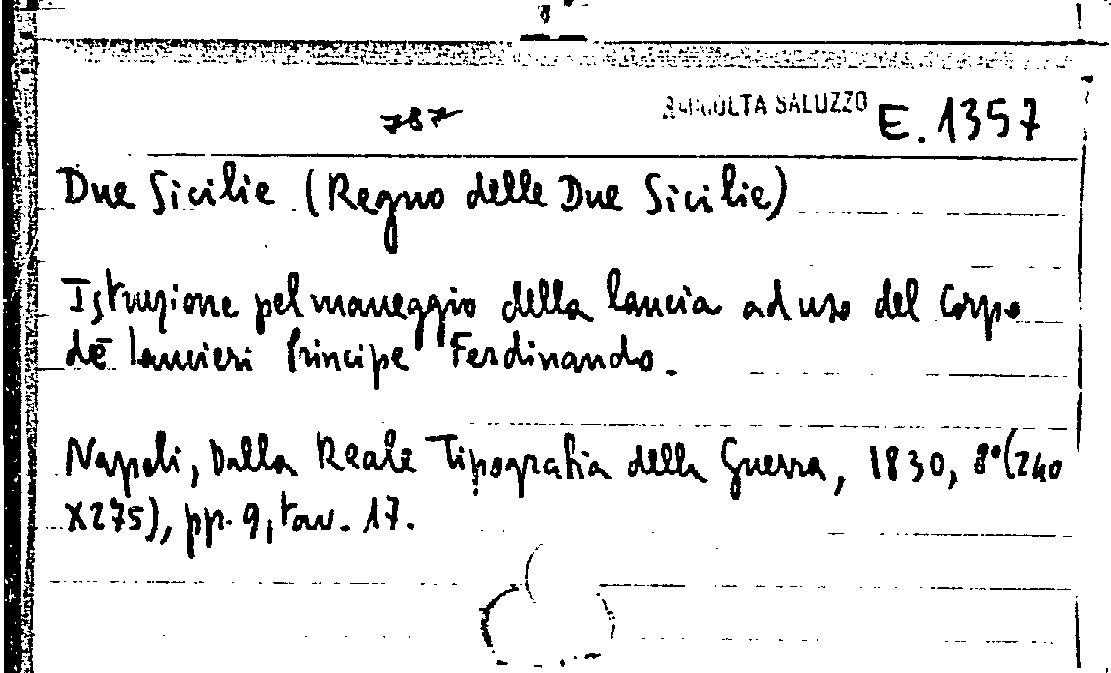 787 RACCOLTA SALUZZO E. 1357
Due Sicilie (Regno delle Due Sicilie)
Istruzione pel maneggio della lancia ad uso del Corpo
de' lancieri Principe Ferdinando.
Napoli, Dalla Reale Tipografia della Guerra, 1830, 8°(240
X275), pp. 9, tav. 17.